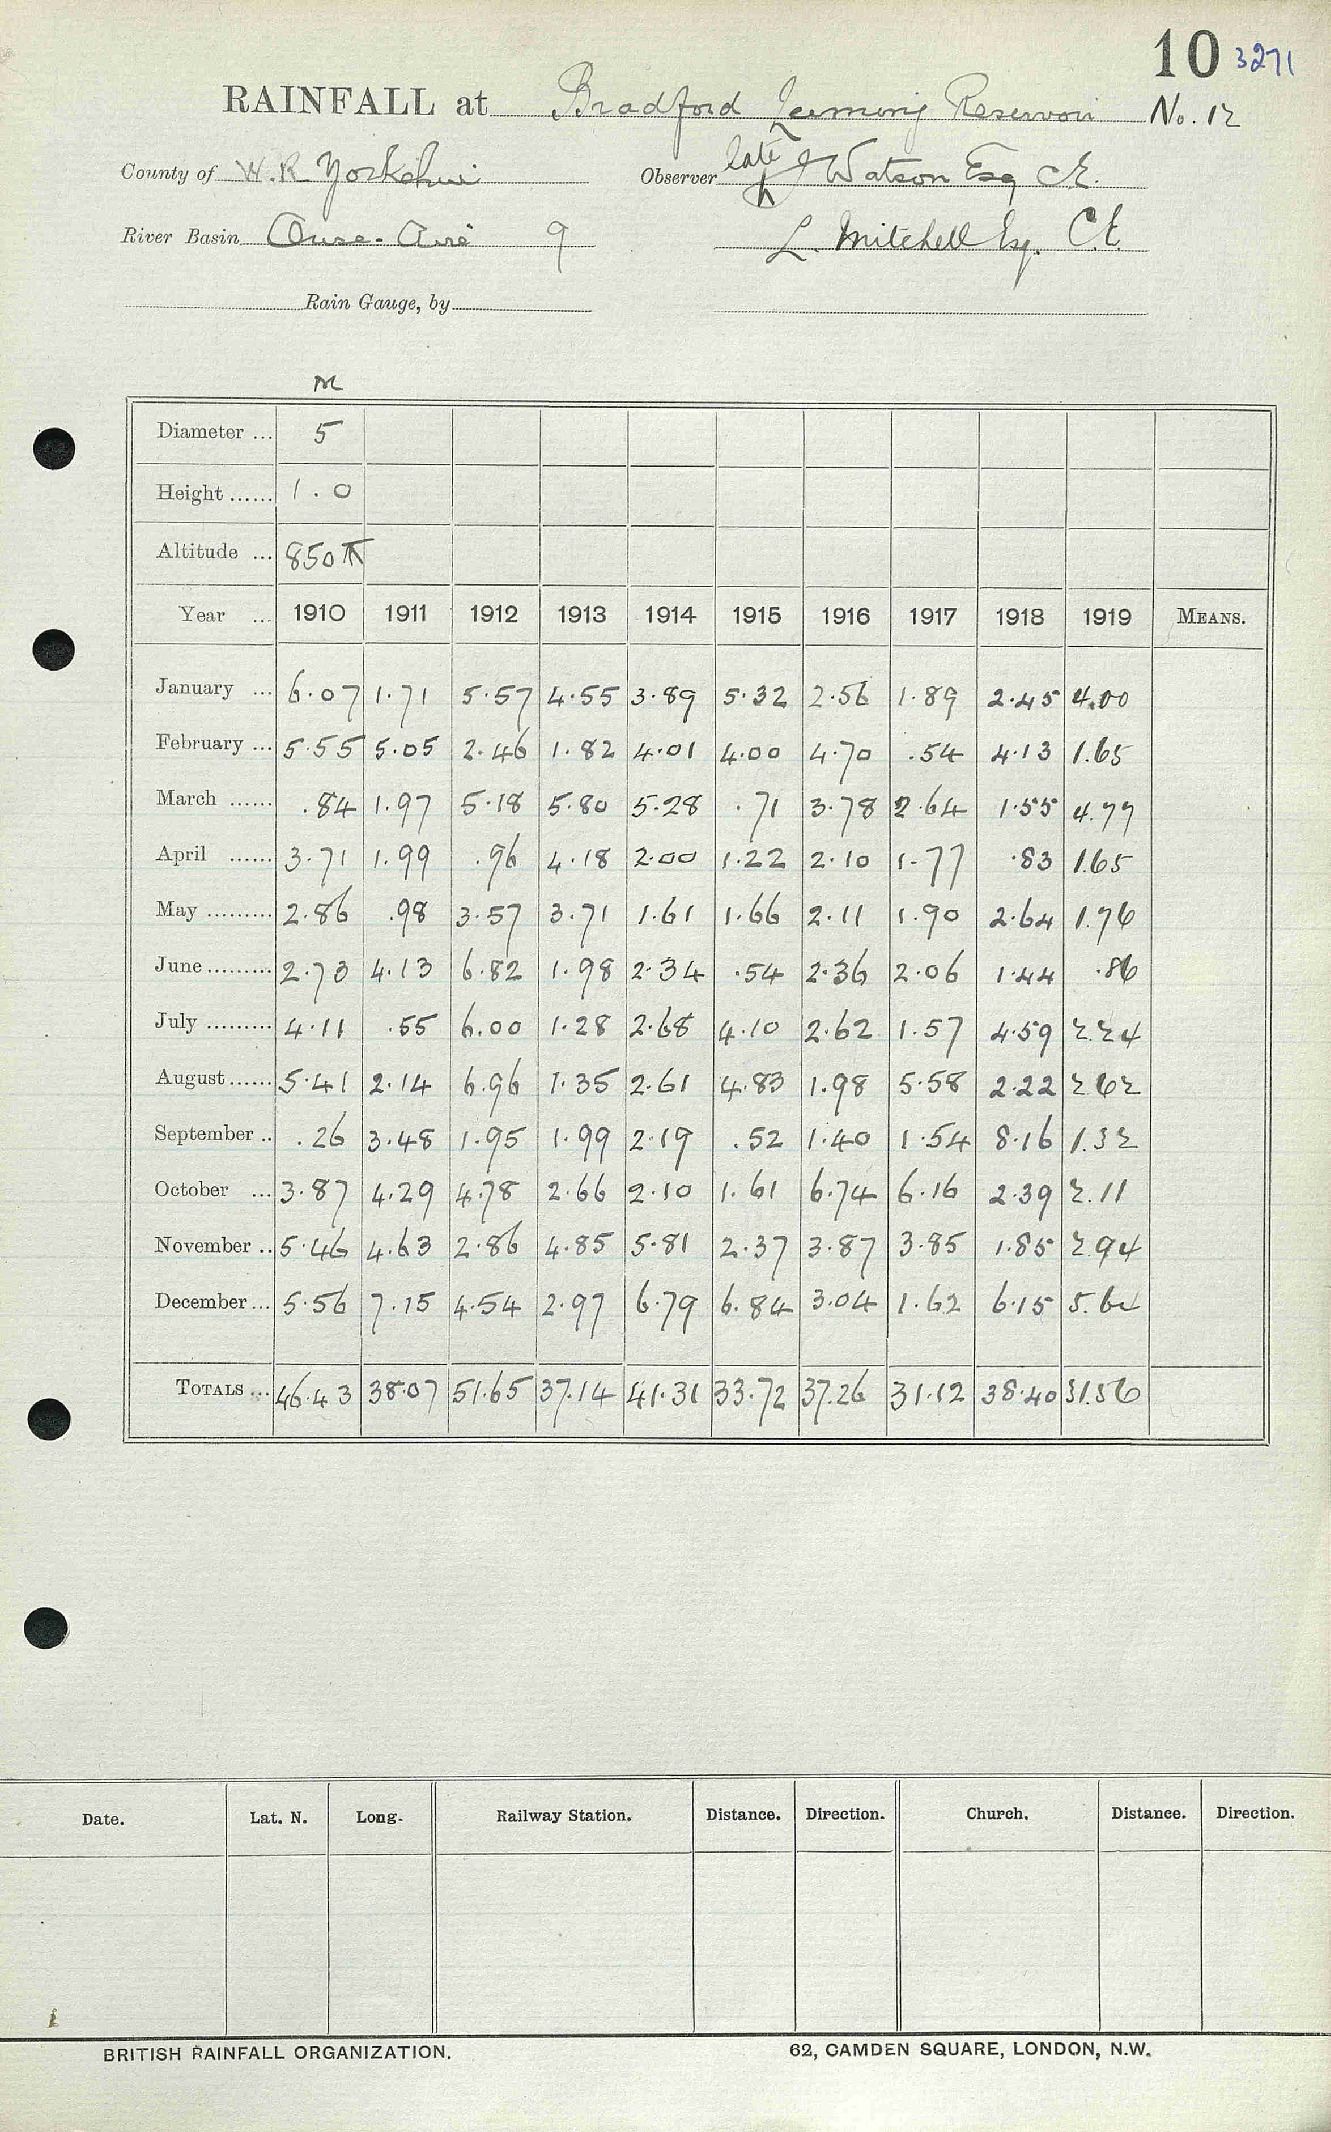 10 3271
RAINFALL at Bradford Leeming Reservoir No. 12
County of W.R Yorkshire Observer late J Watson Esq C.E.
River Basin Ouse-Aire 9 L. Mitchell Esq. C.E.
Rain Gauge, by
M
Diameter ... 5
Height ...... 1.0
Altitude ... 850 ft
Year ... 1910 1911 1912 1913 1914 1915 1916 1917 1918 1919 MEANS.
January ... 6.07 1.71 5.57 4.55 3.89 5.32 2.56 1.89 2.45 4.00
February ... 5.55 5.05 2.46 1.82 4.01 4.00 4.70 .54 4.13 1.65
March ...... .84 1.97 5.18 5.80 5.28 .71 3.78 2.64 1.55 4.77
April ...... 3.71 1.99 .96 4.18 2.00 1.22 2.10 1.77 .83 1.65
May ......... 2.86 .98 3.57 3.71 1.61 1.66 2.11 1.90 2.64 1.76
June ......... 2.73 4.13 6.82 1.98 2.34 .54 2.36 2.06 1.44 .86
July ......... 4.11 .55 6.00 1.28 2.68 4.10 2.62 1.57 4.59 2.24
August ...... 5.41 2.14 6.96 1.35 2.61 4.83 1.98 5.58 2.22 2.62
September .. .26 3.48 1.95 1.99 2.19 .52 1.40 1.54 8.16 1.32
October ... 3.87 4.29 4.78 2.66 2.10 1.61 6.74 6.16 2.39 2.11
November .. 5.46 4.63 2.86 4.85 5.81 2.37 3.87 3.85 1.85 2.94
December ... 5.56 7.15 4.54 2.97 6.79 6.84 3.04 1.62 6.15 5.64
TOTALS ... 46.43 38.07 51.65 37.14 41.31 33.72 37.26 31.12 38.40 31.56
Date. Lat. N. Long. Railway Station. Distance. Direction. Church. Distance. Direction.
BRITISH RAINFALL ORGANIZATION. 62, CAMDEN SQUARE, LONDON, N.W.